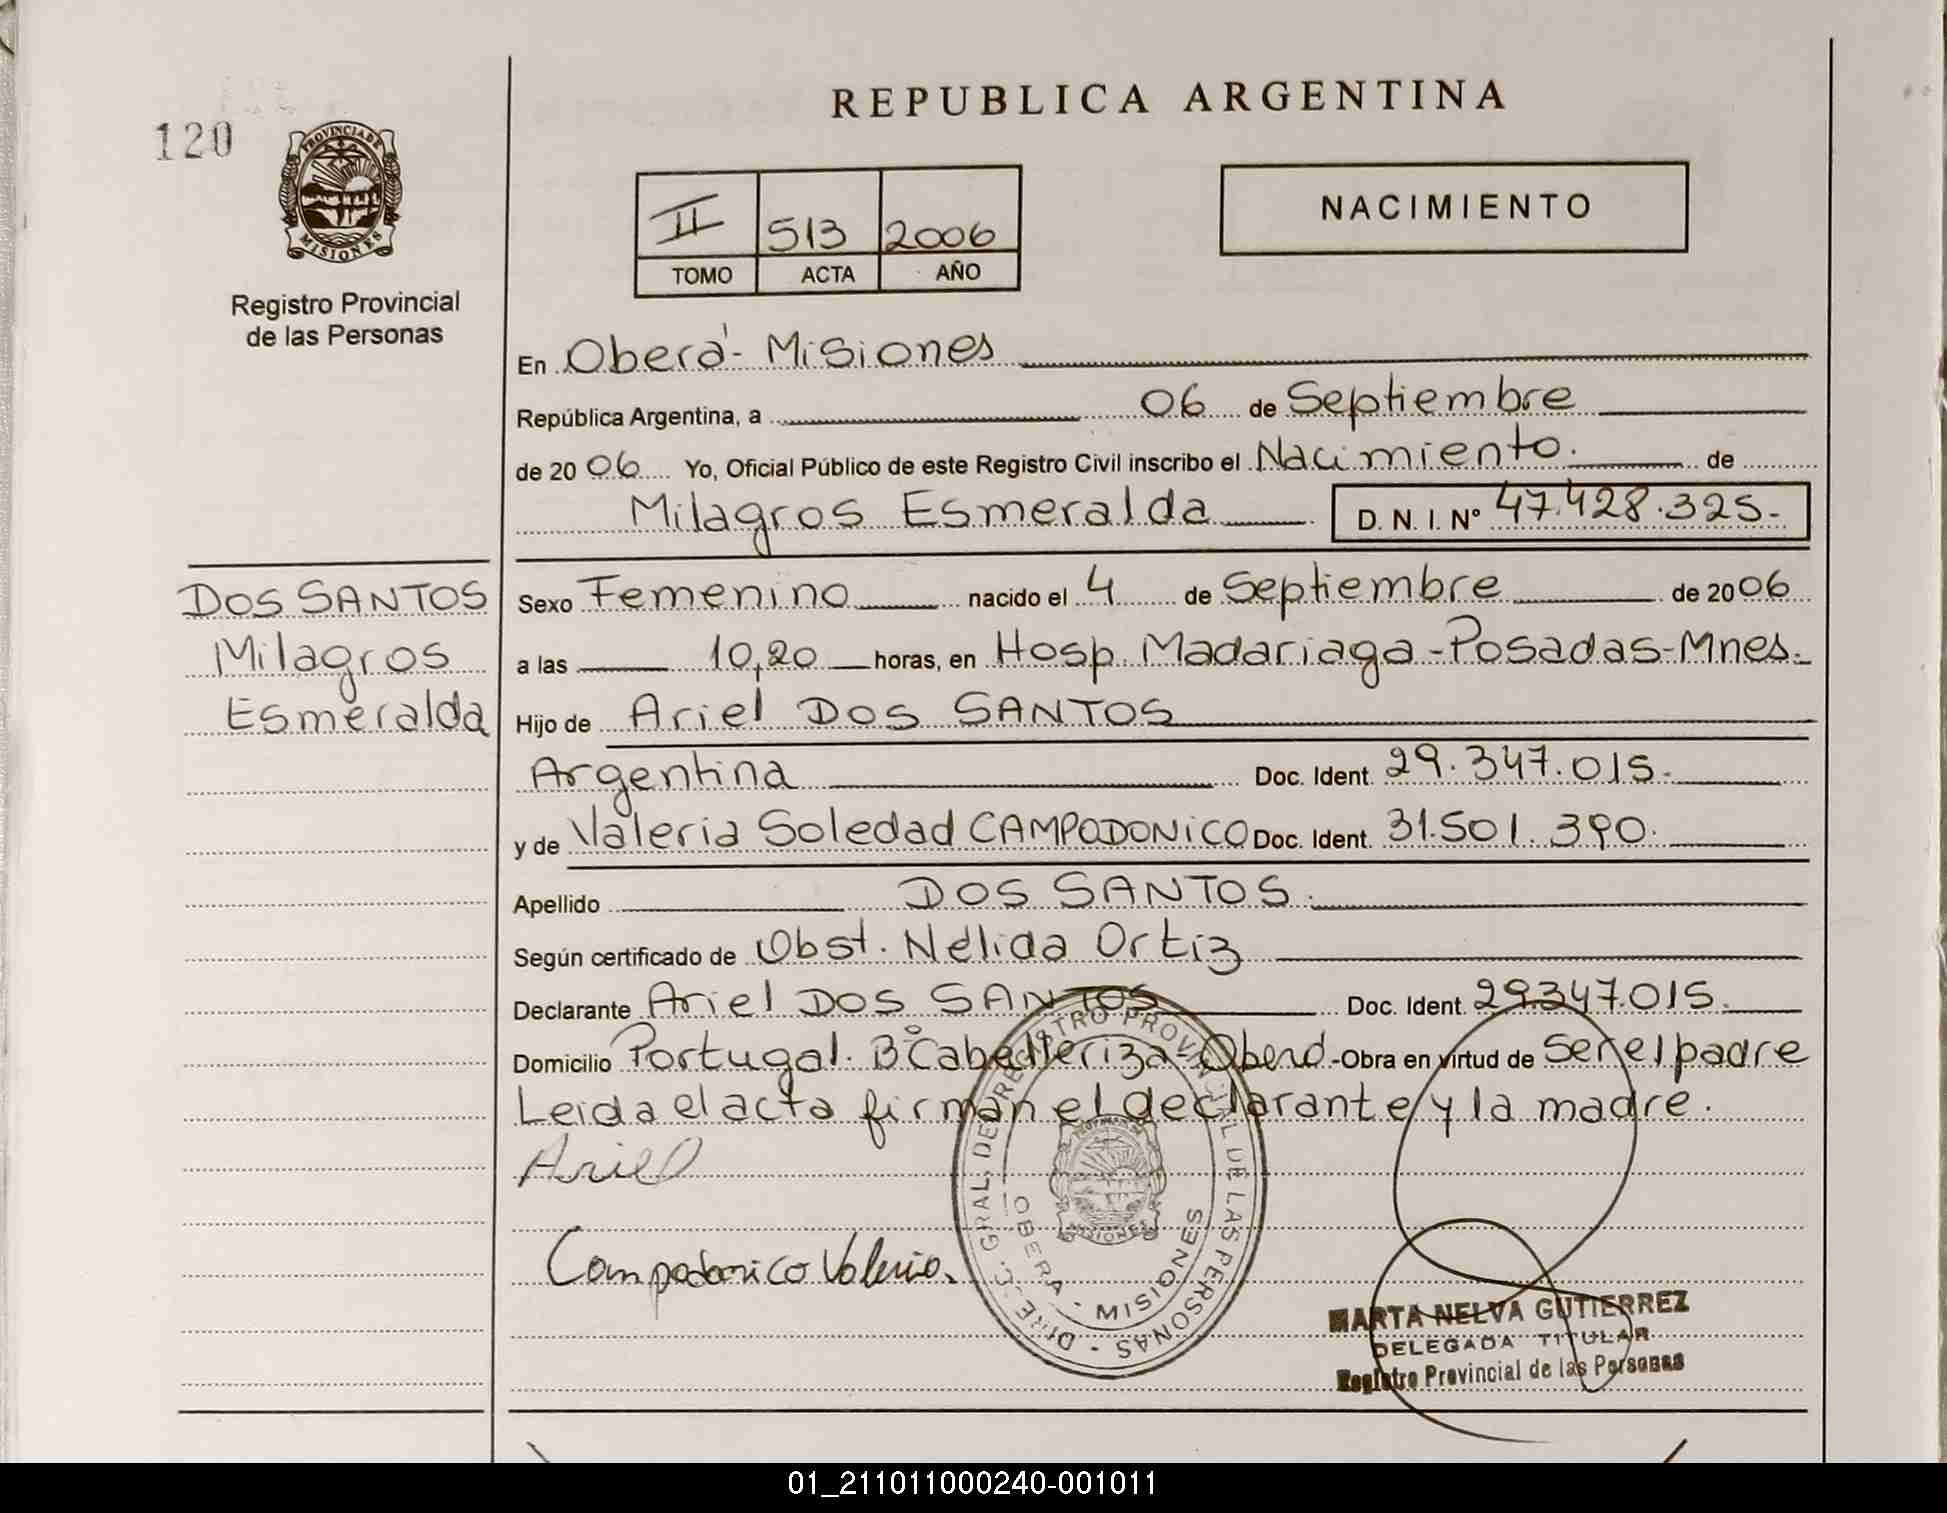 REPUBLICA ARGENTINA
120
PROVINCIA DE
MISIONES
Registro Provincial
de las Personas
NACIMIENTO
II 513 2006
TOMO ACTA AÑO
En Oberá - Misiones
República Argentina, a 06 de Septiembre
de 20 06 Yo, Oficial Público de este Registro Civil inscribo el Nacimiento. de
Milagros Esmeralda D. N. I. N° 47.428.325.-
DOS SANTOS
Milagros
Esmeralda
Sexo Femenino nacido el 4 de Septiembre de 20 06
a las 10,20 horas, en Hosp. Madariaga - Posadas - Mnes.
Hijo de Ariel DOS SANTOS
Argentina Doc. Ident. 29.347.015.
y de Valeria Soledad CAMPODONICO Doc. Ident. 31.501.390.
Apellido DOS SANTOS.
Según certificado de Obst. Nélida Ortiz
Declarante Ariel DOS SANTOS Doc. Ident. 29.347.015.
Domicilio Portugal. B° Caballeriza - Oberá - Obra en virtud de ser el padre
Leida el acta firman el declarante y la madre.
Ariel
Campodonico Valeria.
DIREC. GRAL. DE REGISTRO PROVINCIAL DE LAS PERSONAS
OBERA - MISIONES
MISIONES
MARTA NELVA GUTIERREZ
DELEGADA TITULAR
Registro Provincial de las Personas
01_211011000240-001011